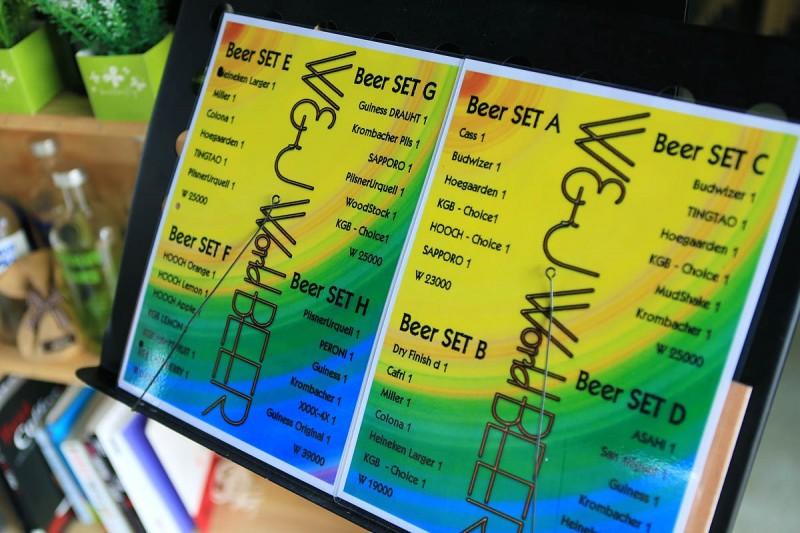 Beer SET E
Heineken Larger 1
Miller 1
Colona 1
Hoegaarden 1
TINGTAO 1
PilsnerUrquell 1
W 25000
Beer SET F
HOOCH Orange 1
HOOCH Lemon 1
HOOCH Apple
KGB LEMON
W&U World BEER
Beer SET G
Guiness DRAUHT 1
Krombacher Pils 1
SAPPORO 1
PilsnerUrquell 1
WoodStock 1
KGB - Choice1
W 25000
Beer SET H
PilsnerUrquell 1
PERONI 1
Guiness 1
Krombacher 1
XXXX-4X 1
Guiness Original 1
W 39000
Beer SET A
Cass 1
Budwizer 1
Hoegaarden 1
KGB - Choice1
HOOCH - Choice 1
SAPPORO 1
W 23000
Beer SET B
Dry Finish d 1
Cafri 1
Miller 1
Colona 1
Heineken Larger 1
KGB - Choice 1
W 19000
W&U World BEER
Beer SET C
Budwizer 1
TINGTAO 1
Hoegaarden 1
KGB - Choice 1
MudShake 1
Krombacher 1
W 25000
Beer SET D
ASAHI 1
San
Guiness 1
Krombacher 1